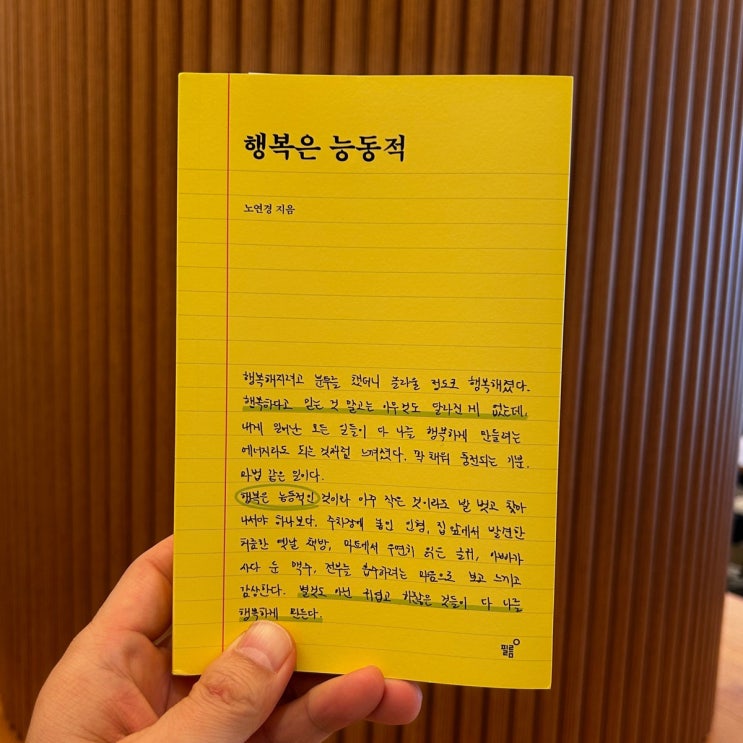 행복은 능동적
노연경 지음
행복해지려고 분투를 했더니 놀라울 정도로 행복해졌다.
행복하다고 믿는 것 말고는 아무것도 달라진 게 없는데.
내게 일어난 모든 일들이 다 나를 행복하게 만들려는
에너지라도 되는 것처럼 느껴졌다. 꽉 채워 충전되는 기분.
마법 같은 말이다.
행복은 능동적인 것이라 아주 작은 것이라도 발 벗고 찾아
나서야 하나보다. 주차장에 붙인 인형, 집 앞에서 발견한
허름한 옛날 책방, 마트에서 우연히 읽은 글귀, 아빠가
사다 둔 맥주, 전부를 흡수하려는 마음으로 보고 느끼고
감상한다. 별것도 아닌 귀엽고 하찮은 것들이 다 나를
행복하게 만든다.
필름